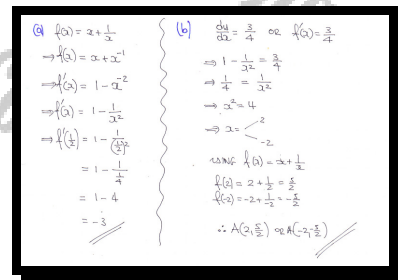 (a) f(x) = x + 1/x
⇒ f(x) = x + x⁻¹
⇒ f'(x) = 1 - x⁻²
⇒ f'(x) = 1 - 1/x²
⇒ f'(1/2) = 1 - 1/(1/2)²
= 1 - 1/(1/4)
= 1 - 4
= -3
(b) dy/dx = 3/4 OR f'(x) = 3/4
⇒ 1 - 1/x² = 3/4
⇒ 1/4 = 1/x²
⇒ x² = 4
⇒ x = 2
-2
USING f(x) = x + 1/x
f(2) = 2 + 1/2 = 5/2
f(-2) = -2 + 1/-2 = -5/2
∴ A(2, 5/2) OR A(-2, -5/2)